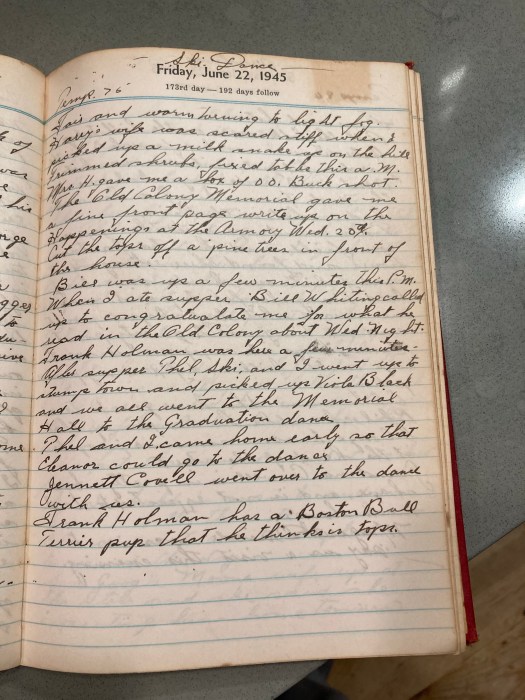 Ski Dance
Friday, June 22, 1945
173rd day — 192 days follow
Temp. 76
Fair and warm turning to light fog.
Harry's wife was scared stiff when I
picked up a milk snake up on the hill
Trimmed shrubs, fixed tobbe this a. M.
Mrs H. gave me a box of 00. Buck shot.
The Old Colony Memorial gave me
a fine front page write up on the
Happenings at the Armory Wed. 20th.
Cut the tops off a pine trees in front of
the house.
Bill was up a few minutes this P.M.
When I ate supper Bill Whiting called
up to congratulate me for what he
read in the Old Colony about Wed. Night.
Frank Holman was here a few minutes
After supper Phel, Ski, and I went up to
stump town and picked up Viola Black
and we all went to the Memorial
Hall to the Graduation dance
Phel and I came home early so that
Eleanor could go to the dance
Jennett Covell went over to the dance
with us.
Frank Holman has a Boston Bull
Terrier pup that he thinks is tops.
of
was
his
to
me